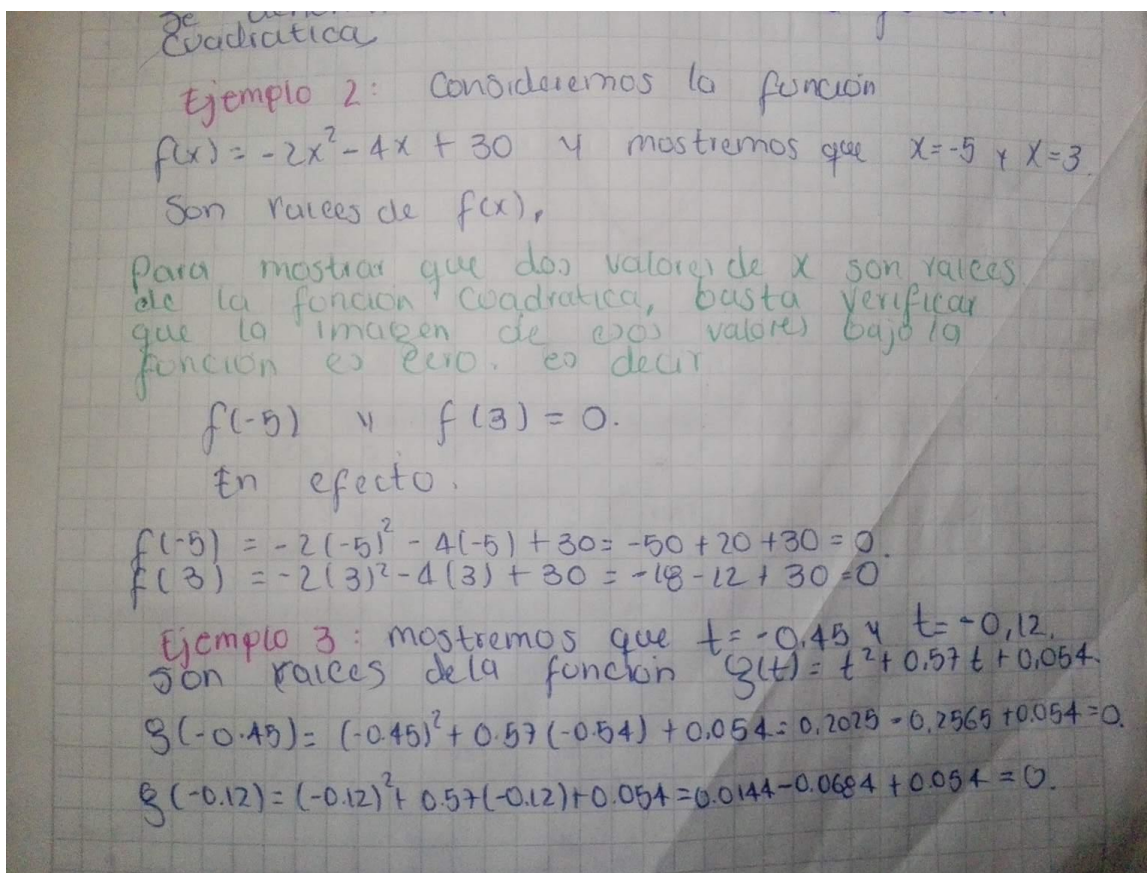 Cuadratica
Ejemplo 2: Consideremos la función
f(x) = -2x² - 4x + 30 y mostremos que x=-5 y x=3.
Son raices de f(x),
Para mostrar que dos valores de x son raices
de la función cuadratica, basta verificar
que la imagen de esos valores bajo la
función es cero. es decir
f(-5) y f(3) = 0.
En efecto.
f(-5) = -2(-5)² - 4(-5) + 30 = -50 + 20 + 30 = 0.
f(3) = -2(3)² - 4(3) + 30 = -18 - 12 + 30 = 0
Ejemplo 3: mostremos que t = -0.45 y t = -0,12.
Son raices dela función g(t) = t² + 0.57t + 0.054.
g(-0.45) = (-0.45)² + 0.57(-0.54) + 0.054 = 0.2025 - 0.2565 + 0.054 = 0.
g(-0.12) = (-0.12)² + 0.57(-0.12) + 0.054 = 0.0144 - 0.0684 + 0.054 = 0.